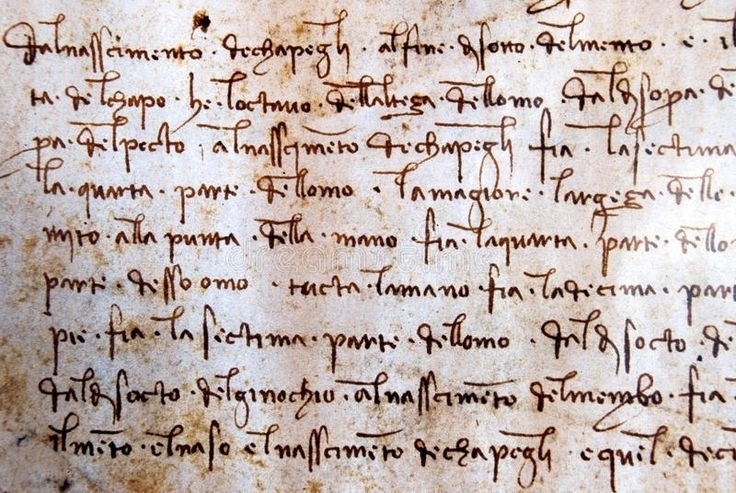 dalnasscimento · dechapegli · alfine · disotto · delmento · e · il
ta · delchapo · he · loctavo · dellaltega · dellomo · daldisopra · de
pa · delpecto · alnasscimēto dechapegli fia · lasectima
la · quarta · parte · dellomo · lamagiore · largega · delle ·
mito · alla punta · della · mano · fia · laquarta · parte · dello
parte · dessomo · tucta · lamano · fia · ladecima · part
pie · fia · la sectima · parte · dellomo · daldisocto · de
daldisocto · delginochio · alnasscimēto delmembo · fia ·
ilmēto · elnaso · elnasscimēto dechapegli · equel · dect